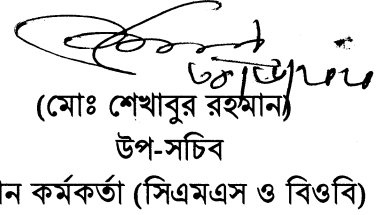 (মোঃ শেখাবুর রহমান)
উপ-সচিব
ন কর্মকর্তা (সিএমএস ও বিওবি)